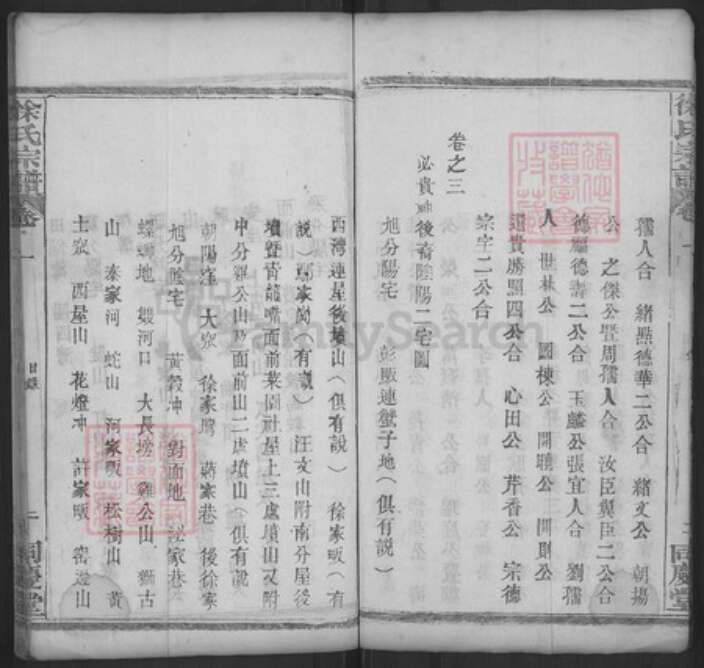 孺人合 緒點德華二公合 緒文公 朝揚
公 之傑公暨周孺人合 汝臣翼臣二公合
德 德壽二公合 玉麟公張宜人合 劉孺
人 世林公 國棟公 開 公 開則公
連貴勝照四公合 心田公 芹香公 宗德
宗宇二公合
卷之三
必貴 後裔陰陽二宅圖
旭分陽宅 彭畈連蟹子地(俱有說)
西灣連屋後墳山(俱有說) 徐家畈(有
說) 家崗(有說) 汪文山附南分屋後
墳暨青龍嘴面前菜園社屋上三處墳山又附
中分雞公山及面前山二處墳山(俱有說
朝陽窪 大窽 徐家塆 蔣家巷 後徐家
旭分陰宅 黃穀冲 對面地 家巷
螺螄地 雙河口 大長塝 雞公山 獅古
山 泰家河 蛇山 河家畈 松樹山 黃
土窽 西屋山 花燈冲 許家畈 窑邊山
徐氏宗譜 卷一 目錄 二 同慶堂
FamilySearch